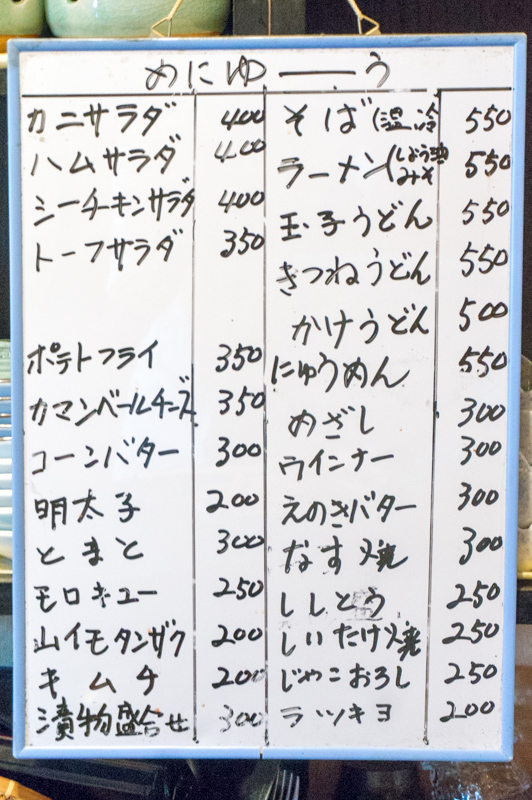 めにゅーう
カニサラダ 400
ハムサラダ 400
シーチキンサラダ 400
トーフサラダ 350
ポテトフライ 350
カマンベールチーズ 350
コーンバター 300
明太子 200
とまと 300
モロキュー 250
山イモタンザク 200
キムチ 200
漬物盛合せ 300
そば(温冷 550
ラーメン(しょう油みそ 550
玉子うどん 550
きつねうどん 550
かけうどん 500
にゅうめん 550
めざし 300
ウインナー 300
えのきバター 300
なす焼 300
ししとう 250
しいたけ焼 250
じゃこおろし 250
ラッキョ 200